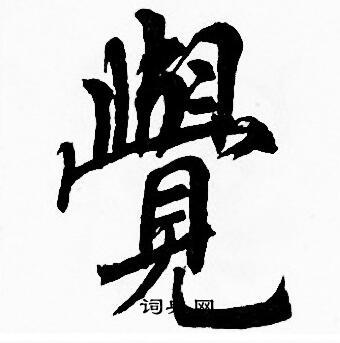 覺
词典网